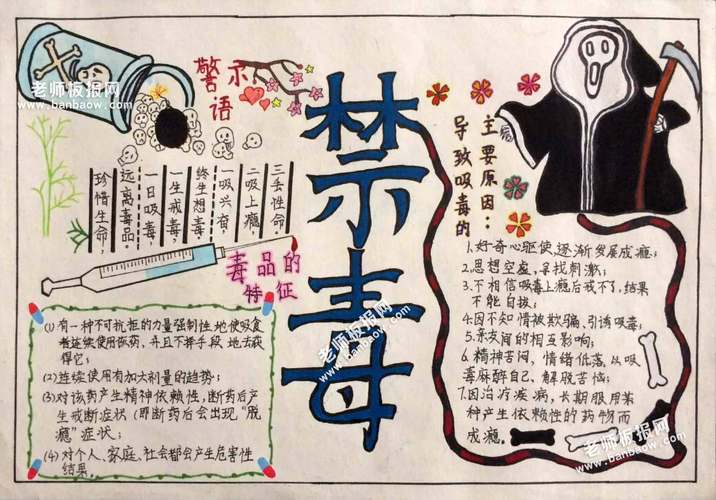 老师板报网
www.banbaow.com
警示
语
禁毒
珍惜生命,
远离毒品。
一日吸毒,
一生戒毒,
终生想毒,
一吸兴奋,
二吸上瘾,
三丢性命.
毒品的
特征
(1)有一种不可抗拒的力量强制性地使吸食
者连续使用该药,并且不择手段地去获
得它;
(2)连续使用有加大剂量的趋势;
(3)对该药产生精神依赖性,断药后产
生戒断症状(即断药后会出现“脱
瘾”症状;
(4)对个人、家庭、社会都会产生危害性
结果.
导致吸毒的
主要原因:
1.好奇心驱使,逐渐发展成瘾;
2.思想空虚,寻找刺激;
3.不相信吸毒上瘾后戒不了,结果
不能自拔;
4.因不知情被欺骗、引诱吸毒;
5.亲友间的相互影响;
6.精神苦闷,情绪低落,以吸
毒麻醉自己、解脱苦恼;
7.因治疗疾病,长期服用某
种产生依赖性的药物而
成瘾.
老师板报网
www.banbaow.com
老师板报网
www.banbaow.com
老师板报网
www.banbaow.com
老师板报网
www.banbaow.com